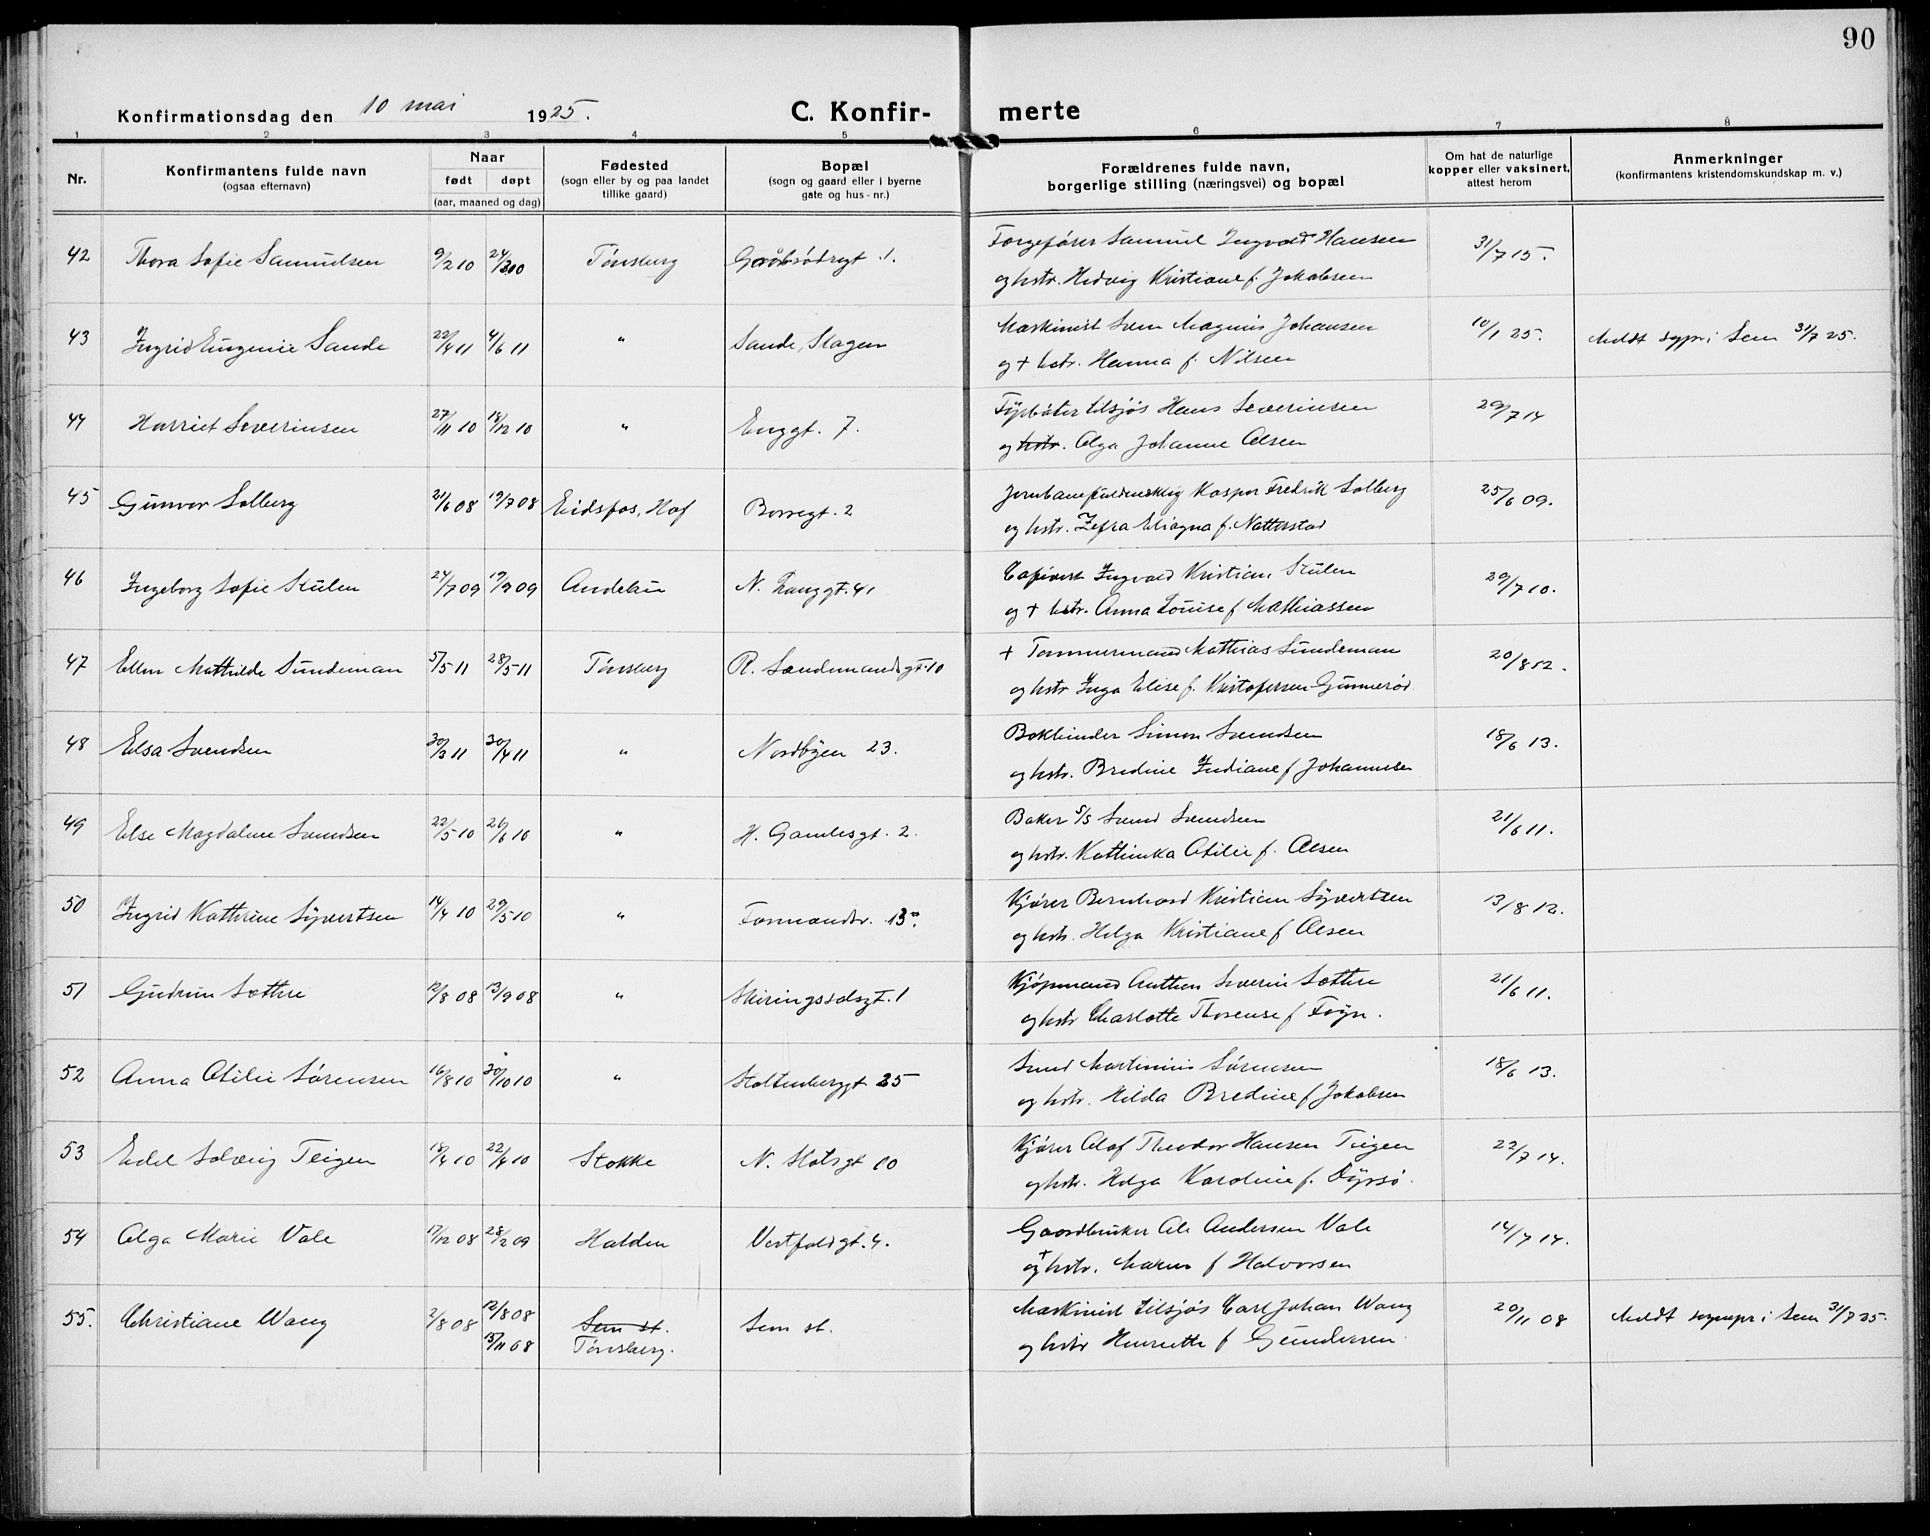 90
Konfirmationsdag den 10 mai 1925.
C. Konfirmerte
1 2 3 4 5 6 7 8
Nr. Konfirmantens fulde navn (ogsaa efternavn) Naar født døpt (aar, maaned og dag) Fødested (sogn eller by og paa landet tillike gaard) Bopæl (sogn og gaard eller i byerne gate og hus-nr.) Forældrenes fulde navn, borgerlige stilling (næringsvei) og bopæl Om hat de naturlige kopper eller vaksinert, attest herom Anmerkninger (konfirmantens kristendomskundskap m. v.)
42 Thora Sofie Samuelsen 9/2 10 24/3 10 Tønsberg 1. Færgefører Samuel Ingvald Hansen 31/7 15.
og hstr. Hedvig Kristiane f. Jakobsen
43 Ingrid Eugenie Sande 22/4 11 4/6 11 " Sande, Slagen Maskinist Sven Magnus Johansen 10/1 25. Meldt sogpr. i Sem 31/7 25.
og + hstr. Hanna f. Nilsen
44 Harriet Severinsen 27/11 10 18/12 10 " Enggt. 7. Fyrbøter tilsjøs Hans Severinsen 29/7 14
og hstr. Olga Johanne Olsen
45 Gunvor Solberg 21/6 08 19/7 08 Eidsfos, Hof Borregt. 2 Kaspar Fredrik Solberg 25/6 09.
og hstr. Zefra f. Natterstad
46 Ingeborg Sofie Skulen 24/7 09 19/9 09 Andebu N. Langgt. 41 Ingvald Kristian Skulen 29/7 10.
og + hstr. Anna Louise f Mathiassen
47 Ellen Mathilde Sundeman 5/5 11 28/5 11 Tønsberg R. Sandemandsgt. 10 + Tømmermand Mathias Sundeman 20/8 12.
og hstr. Inga Elise f. Kristofersen-Gunnerød
48 Elsa Svendsen 30/3 11 30/4 11 " Nordbyen 23. Bokbinder Simon Svendsen 18/6 13.
og hstr. Bredine Indiane f Johannesen
49 Else Magdalene Svendsen 22/5 10 26/6 10 " H. Gamlesgt. 2. Baker S/S Svend Svendsen 21/6 11.
og hstr. Kathinka Otilie f. Olsen
50 Ingrid Kathrine Syvertsen 14/4 10 29/5 10 " Formandsv. 13a. Kjører Bernhard Kristian Syvertsen 13/8 12.
og hstr. Helga Kristiane f Olsen
51 Gudrun Sæthre 12/8 08 13/9 08 " Skiringssalsgt. 1 Kjøpmand Anthon Severin Sæthre 21/6 11.
og hstr Charlotte Thorense f Føyn.
52 Anna Otilie Sørensen 16/8 10 30/10 10 " Stoltenberggt 35 Smed Martinius Sørensen 18/6 13.
og hstr. Hilda Bredine f Jakobsen
53 Edel Solveig Teigen 18/4 10 22/4 10 Stokke N. Slotsgt 10 Kjører Olaf Theodor Hansen Teigen 22/7 14.
og hstr. Helga Karoline f. Dyrsø.
54 Olga Marie Vale 17/12 08 28/2 09 Halden Vestfoldgt. 4. Gaardbruker Ole Andersen Vale 14/7 14.
og + hstr. Maren f Halvorsen
55. Christiane Wang 2/8 08 12/8 08 Sem st. Sem st. Maskinist tilsjøs Carl Johan Wang 20/11 08 Meldt sognepr. i Sem 31/7 25.
15/11 08 Tønsberg. og hstr Henriette f Gundersen.